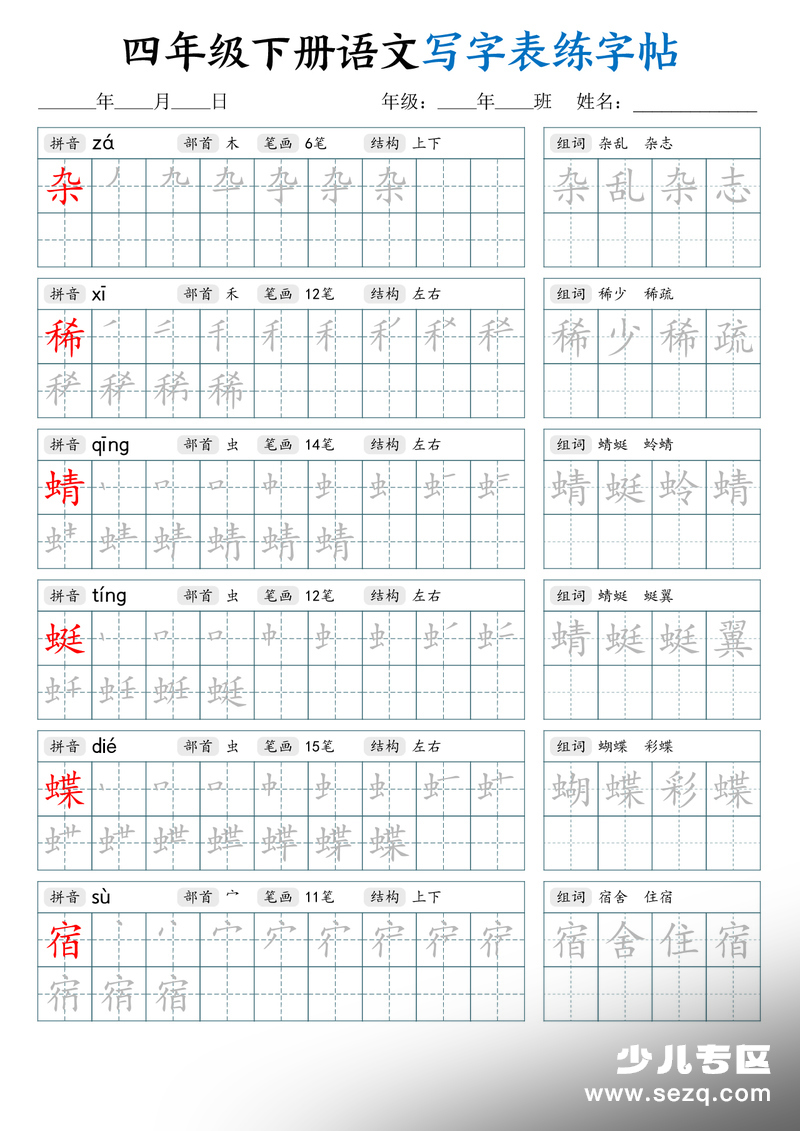 四年级下册语文写字表练字帖
______年____月____日 年级：____年____班 姓名：____________
拼音 zá 部首 木 笔画 6笔 结构 上下 组词 杂乱 杂志
杂 杂 杂乱杂志
拼音 xī 部首 禾 笔画 12笔 结构 左右 组词 稀少 稀疏
稀 二 三 千 禾 禾 稀少稀疏
稀
拼音 qīng 部首 虫 笔画 14笔 结构 左右 组词 蜻蜓 蛉蜻
蜻 丶 口 口 中 虫 虫 蜻蜓蛉蜻
蜻 蜻 蜻
拼音 tíng 部首 虫 笔画 12笔 结构 左右 组词 蜻蜓 蜓翼
蜓 丶 口 口 中 虫 虫 蜻蜓蜓翼
蜓
拼音 dié 部首 虫 笔画 15笔 结构 左右 组词 蝴蝶 彩蝶
蝶 丶 口 口 中 虫 虫 蝴蝶彩蝶
蝶
拼音 sù 部首 宀 笔画 11笔 结构 上下 组词 宿舍 住宿
宿 丶 宀 宿舍住宿
宿
少儿专区
www.sezq.com